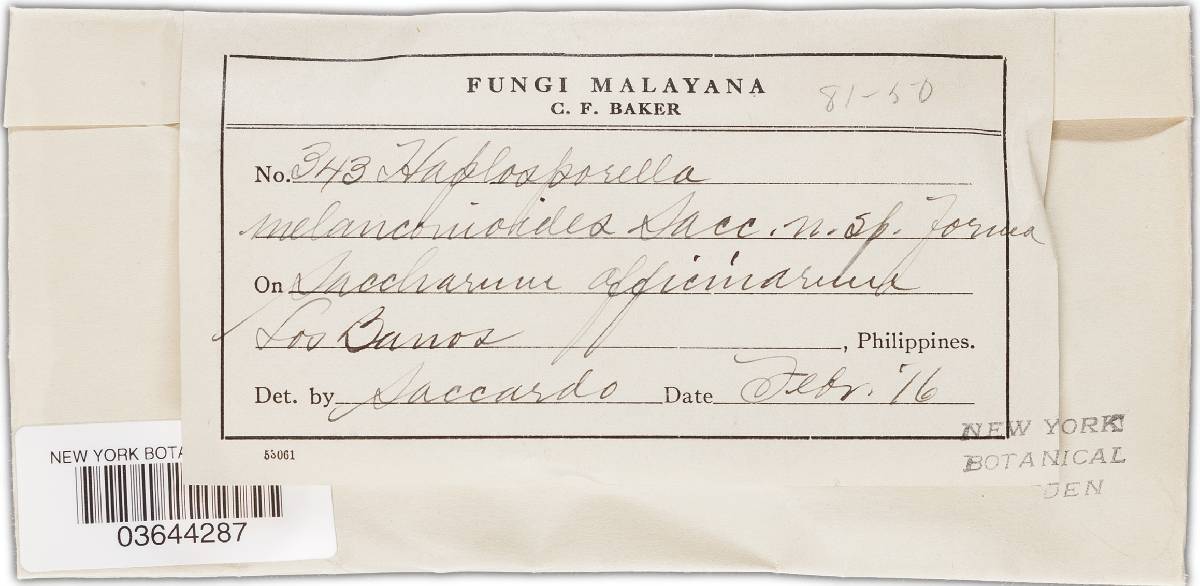 FUNGI MALAYANA
C. F. BAKER
81-50
No. 343 Haplosporella
melanconioides Sacc. n. sp. Forma
On Saccharum officinarum
Los Banos, Philippines.
Det. by Saccardo Date Febr. '16
55061
NEW YORK BOTA
03644287
NEW YORK
BOTANICAL
DEN